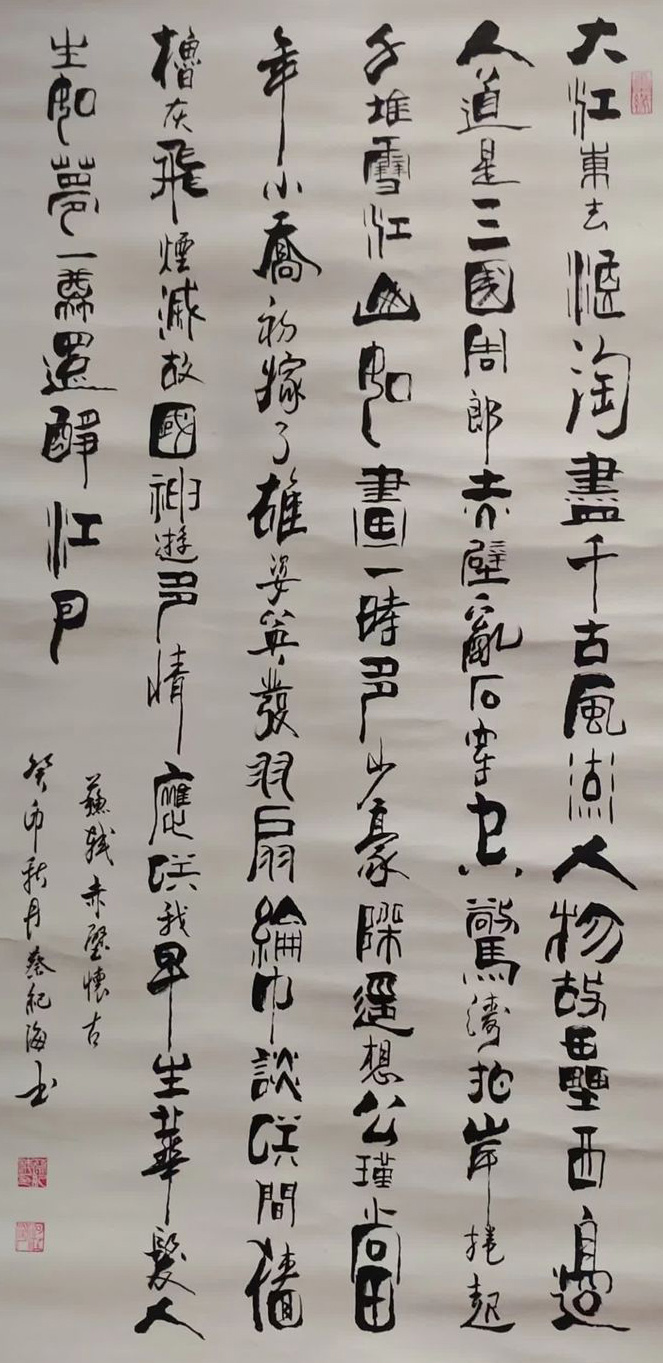 大江東去浪淘盡千古風流人物故壘西邊
人道是三國周郎赤壁亂石穿空驚濤拍岸捲起
千堆雪江山如畫一時多少豪傑遥想公瑾當
年小喬初嫁了雄姿英發羽扇綸巾談笑間檣
櫓灰飛煙滅故國神遊多情應笑我早生華髮人
生如夢一尊還酹江月
蘇軾赤壁懷古
癸卯秋月蔡紀海书